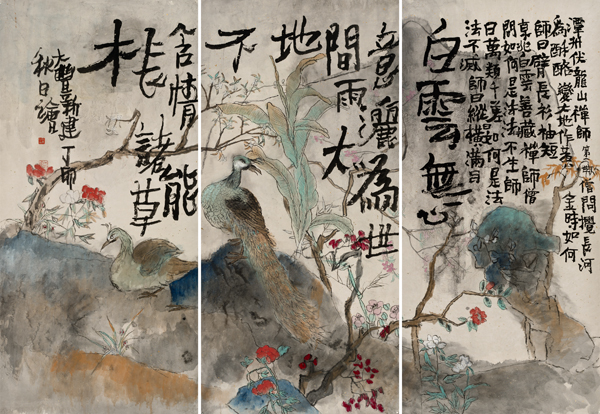 潭州伏龍山禪師第一世僧問攪長河
為酥酪變大地作黃金時如何
師曰臂長衫袖短
白雲善藏禪師僧
問如何是法法不生師
曰萬類千差如何是法
法不滅師曰縱橫滿目
白雲無心
意灑為世
間雨大
地
不
含情能
長諸草
木
大豐新建丁卯
秋日繪